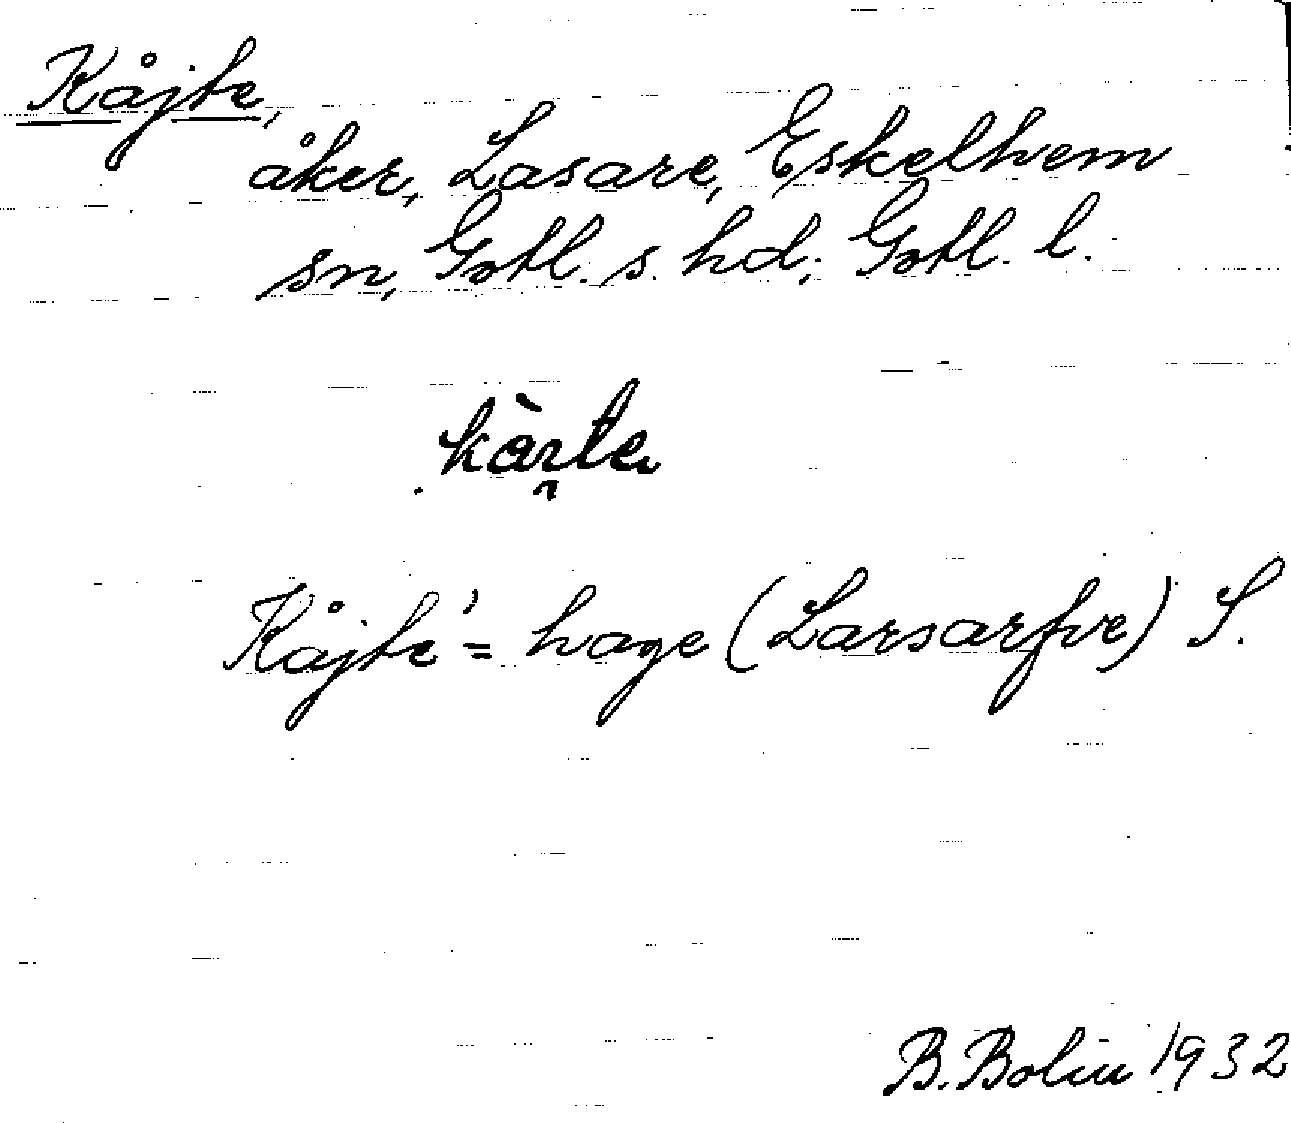 Kåjte,
åker, Lasare, Eskelhem
sn, Gotl. s. hd; Gotl. l.
Kåjte'= hage (Larsarfve) S.
B. Bolin 1932